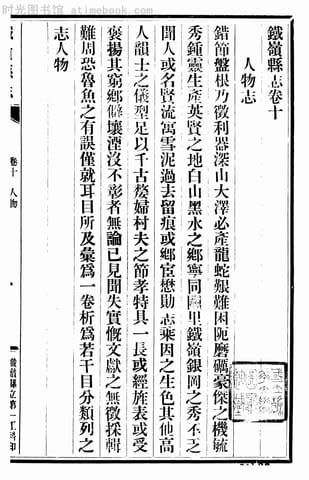 时光图书馆
鐵嶺縣志卷十
人物志
錯節盤根乃徵利器深山大澤必產龍蛇艱難困阨磨礪豪傑之機毓
秀鍾靈生產英賢之地白山黑水之鄉寧同里鐵嶺銀岡之秀不乏
聞人或名賢流寓雪泥過去留痕或鄉宦懋勛志乘因之生色其他高
人韻士之儀型足以千古嫠婦村夫之節孝特具一長或經旌表或受
褒揚其窮鄉僻壤湮沒不彰者無論已見聞失實慨文獻之無徵採輯
難周恐魯魚之有誤僅就耳目所及彙為一卷析為若干目分類列之
志人物
卷十 人物